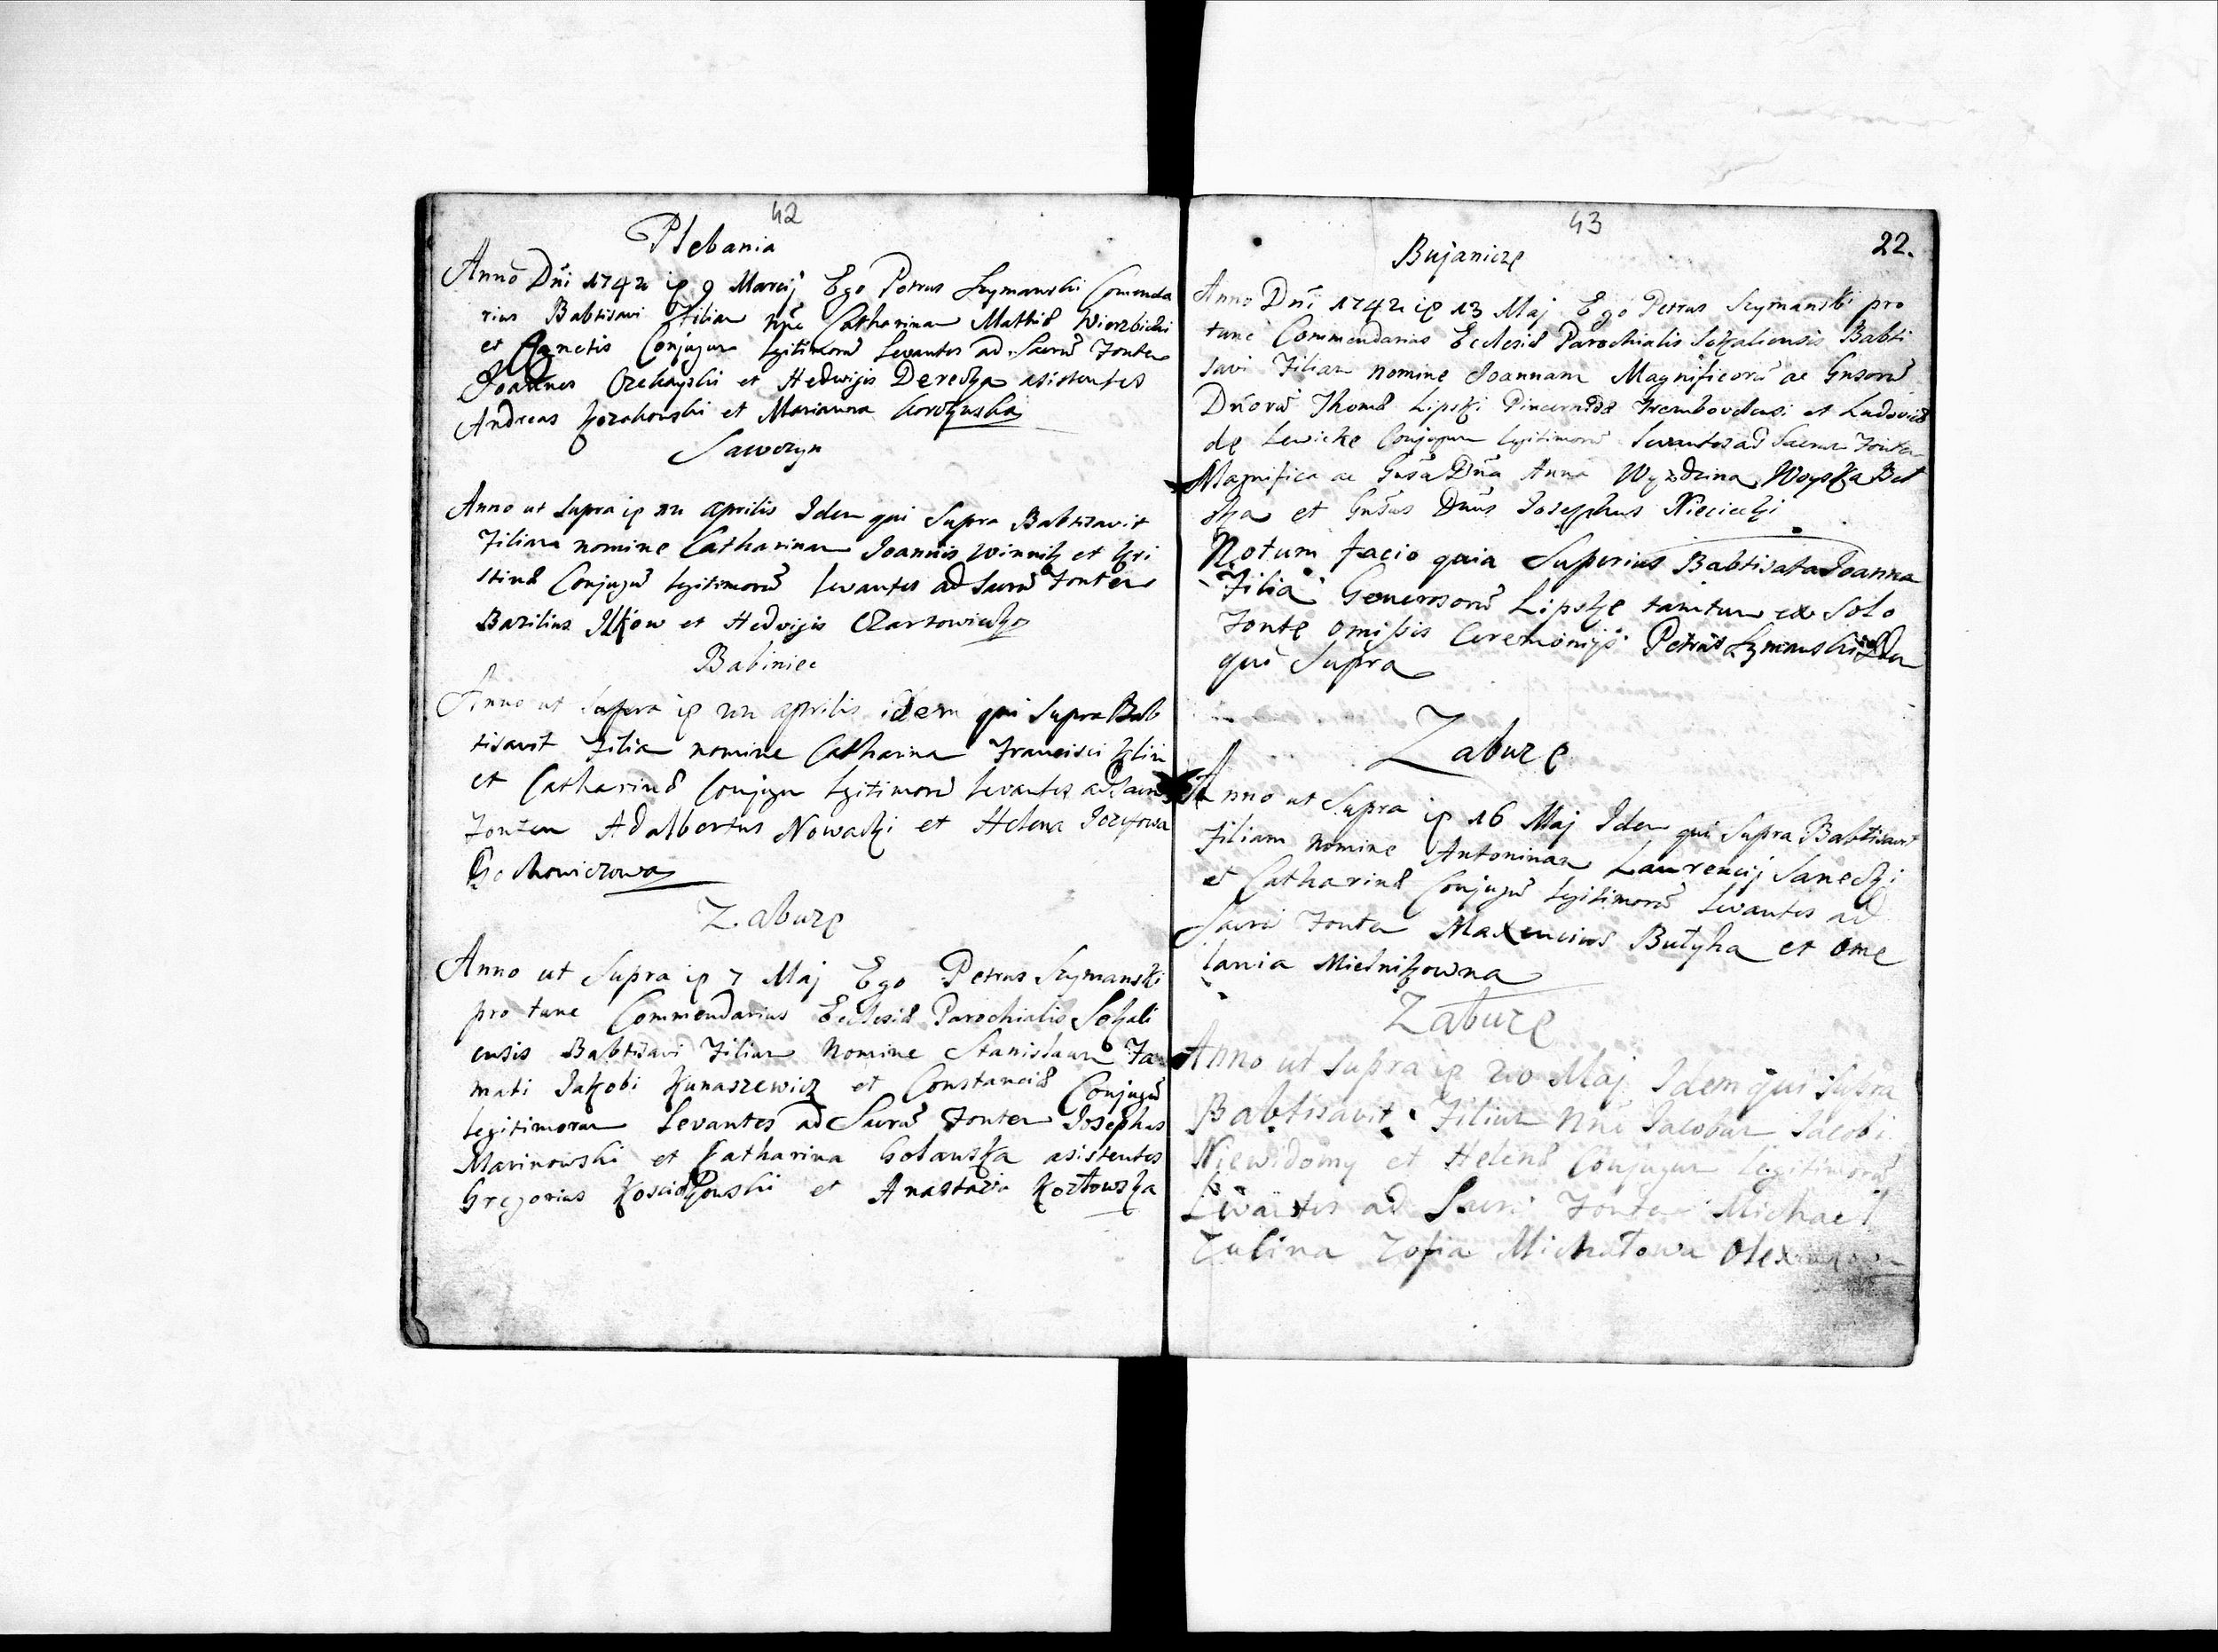 42
Plebania
Anno Dni 1742 ip 9 Marcij Ego Petrus Szymanski Comenda
rius Babtisavi Filiam nne Catharinam Mathiæ Wierzbicki
et Agnetis Conjugum legitimorū Levantes ad Sacrū Fontem
Joannes Orchayski et Hedwigis Derecka asistentes
Andreas Kozakowski et Marianna
Sawczyn
Anno ut Supra ip 22 Aprilis Idem qui Supra Babtisavit
Filiam nomine Catharinam Joannis Winnik et Kri
stinæ Conjugū legitimorū levantes ad Sacrū Fontem
Bazilius Ilkow et Hedvigis
Babiniec
Anno ut Supra ip 22 aprilis idem qui Supra Bab
tisavit Filiam nomine Catharina Francisci
et Catharinæ Conjugum legitimorū levantes ad Sacrū
Fontem Adalbertus Nowacki et Helena Jozefowa

Zabuze
Anno ut Supra ip 7 Maj Ego Petrus Szymanski
pro tunc Commendarius Eclesiæ Parochialis Sokali
ensis Babtisavi Filiam Nomine Stanislaum Fa
mati Jakobi Kunaszewicz et Constanciæ Conjugū
legitimorum Levantes ad Sacrū Fontem Josephus
Marinowski et Catharina Golanska asistentes
Gregorius et Anastazia Kozłowska
43
22.
Bujanicze
Anno Dni 1742 ip 13 Maj Ego Petrus Szymanski pro
tunc Commendarius Eclesiæ Parochialis Sokaliensis Babti
savi Filiam nomine Joannam Magnificorū ac Gnsorū
Dnorū Thomæ Lipski Pincernidæ Trembovolensi et Ludovicæ
de Lewicke Conjugum legitimorū levantes ad Sacrum Fontem
Magnifica ac Gnsa Dna Anna Wyzdzina Woyska Bel
ska et Gnsus Dnus Josephus Niecielski
Notum facio quia Superius Babtisata Joanna
Filia Generosorū Lipskie tantum ex Solo
Fonte omissis Ceremonijs Petrus Szymanski idem
qui Supra
Zabuze
Anno ut Supra ip 16 Maj Idem qui Supra Babtisavit
Filiam nomine Antoninam Laurencij Sanecki
et Catharinæ Conjugū legitimorū levantes ad
Sacrū Fontem Maxencius Butyka et Ome
lania Mielnikowna
Zabuze
Anno ut Supra ip 20 Maj Idem qui Supra
Babtisavit Filium nne Jacobum Jacobi
Niewidomy et Helenæ Conjugum legitimorū
Levantes ad Sacrū Fontem Michael
Zulina Zofia Michałowa